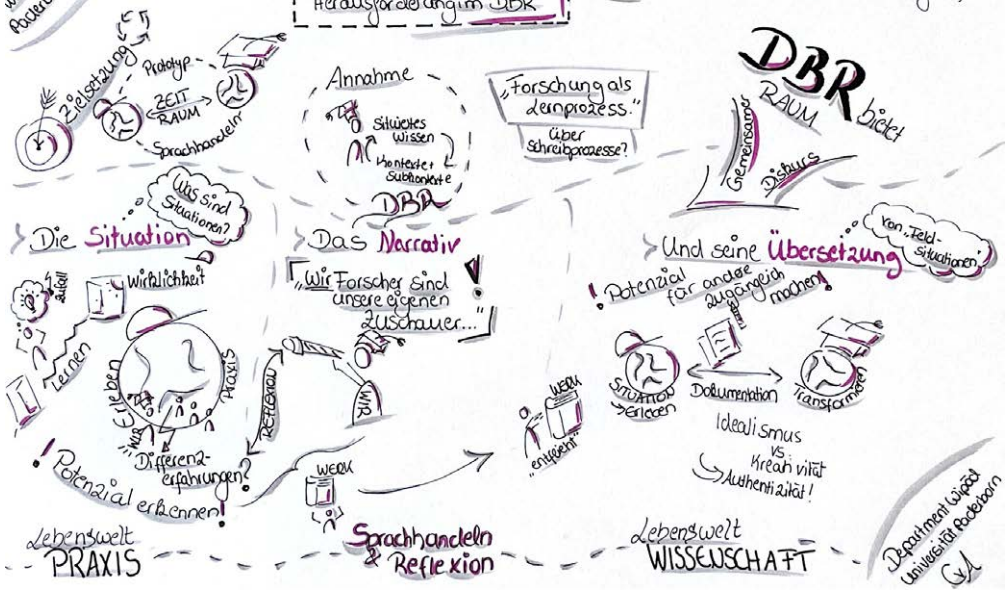 Paderborn
Herausforderung im DBR!
Zielsetzung
Prototyp
ZEIT
RAUM
Sprachhandeln
Annahme
Situiertes
Wissen
Kontexte +
Subkontexte
DBR
„Forschung als
Lernprozess.“
über
Schreibprozesse?
DBR bietet
RAUM
Gemeinsamer
Diskurs
Was sind
Situationen?
> Die Situation
Zufall
Wirklichkeit
Lernen
Erleben
PRAXIS
"WIR"
Differenz-
erfahrungen?
! Potenzial erkennen!
Lebenswelt
PRAXIS
> Das Narrativ
„Wir Forscher sind
unsere eigenen
Zuschauer..." !
REFLEXION
WIR
WERK
Sprachhandeln
& Reflexion
Von „Feld-
situationen“
> Und seine Übersetzung
! Potenzial
für andere
zugänglich
machen!
WERK
"entsteht"
SITUATION
→ erleben
Dokumentation
Transformieren
Idealismus
vs.
Kreativität
Authentizität!
Lebenswelt
WISSENSCHAFT
Department Wipäd
Universität Paderborn